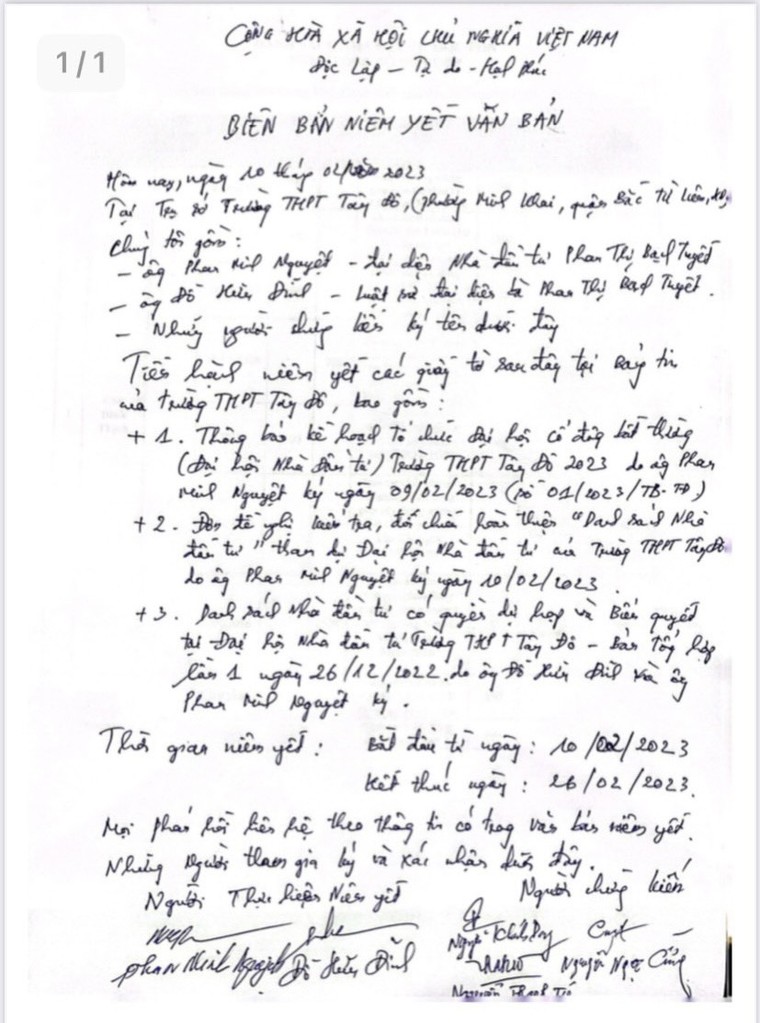 1/1
CỘNG HOÀ XÃ HỘI CHỦ NGHĨA VIỆT NAM
Độc Lập - Tự do - Hạnh Phúc
BIÊN BẢN NIÊM YẾT VĂN BẢN
Hôm nay, ngày 10 tháng 02 2023
Tại Trụ sở Trường THPT Tây Đô, (phường Minh Khai, quận Bắc Từ Liêm,
Chúng tôi gồm:
- ông Phan Minh Nguyệt - đại diện Nhà đầu tư Phan Thị Bạch Tuyết
- ông Đỗ Hiền Đình - Luật sư đại diện bà Phan Thị Bạch Tuyết.
- Những người chứng kiến ký tên dưới đây
Tiến hành niêm yết các giấy tờ sau đây tại Bảng tin
của Trường THPT Tây Đô, bao gồm:
+ 1. Thông báo kế hoạch tổ chức Đại hội cổ đông bất thường
(Đại hội Nhà Đầu tư) Trường THPT Tây Đô 2023 do ông Phan
Minh Nguyệt ký ngày 09/02/2023 (số 01/2023/TB-TĐ.)
+ 2. Đơn đề nghị kiểm tra, đối chiếu hoàn thiện "Danh sách Nhà
đầu tư" tham dự Đại hội Nhà đầu tư của Trường THPT Tây Đô
do ông Phan Minh Nguyệt ký ngày 10/02/2023.
+ 3. Danh sách Nhà đầu tư có quyền dự họp và Biểu quyết
tại Đại hội Nhà đầu tư Trường THPT Tây Đô - Bản Tổng hợp
lần 1 ngày 26/12/2022. do ông Đỗ Hiền Đình và ông
Phan Minh Nguyệt ký.
Thời gian niêm yết: Bắt đầu từ ngày: 10/02/2023
Kết thúc ngày: 26/02/2023.
Mọi phản hồi liên hệ theo thông tin có trong văn bản niêm yết.
Những người tham gia ký và xác nhận dưới đây.
Người Thực hiện Niêm yết
Người chứng kiến
Phan Minh Nguyệt Đỗ Hiền Đình
Nguyễn
Nguyễn Ngọc
Nguyễn Thanh